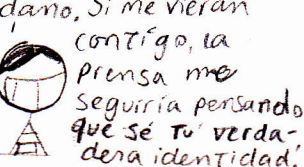 daño. Si me vieran
contigo, la
prensa me
seguiría pensando
que sé tu verda-
dera identidad.